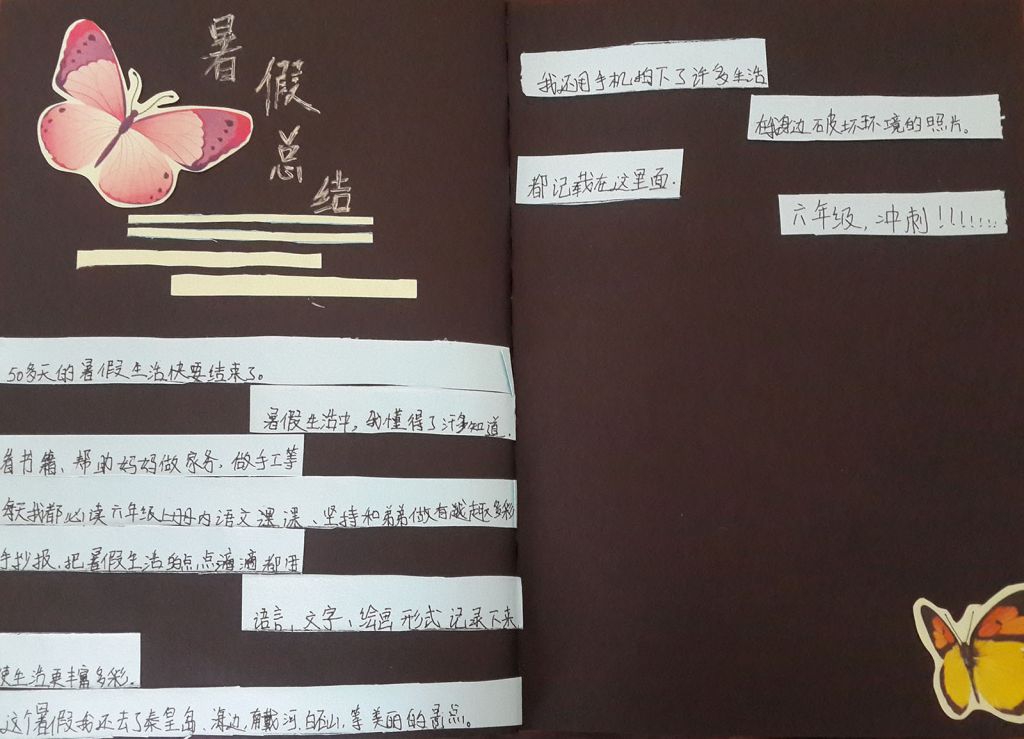 暑假总结
50多天的暑假生活快要结束了。
暑假生活中，我懂得了许多知道.
看书籍、帮助妈妈做家务，做手工等
每天我都必读六年级上册内语文课课、坚持和弟弟做有趣多彩
手抄报，把暑假生活的点点滴滴都用
语言、文字、绘画形式记录下来
使生活更丰富多彩.
这个暑假我还去了秦皇岛、海边，南戴河等美丽的景点。
我还用手机拍下了许多生活
在海边破坏环境的照片。
都记载在这里面.
六年级，冲刺！！！！……